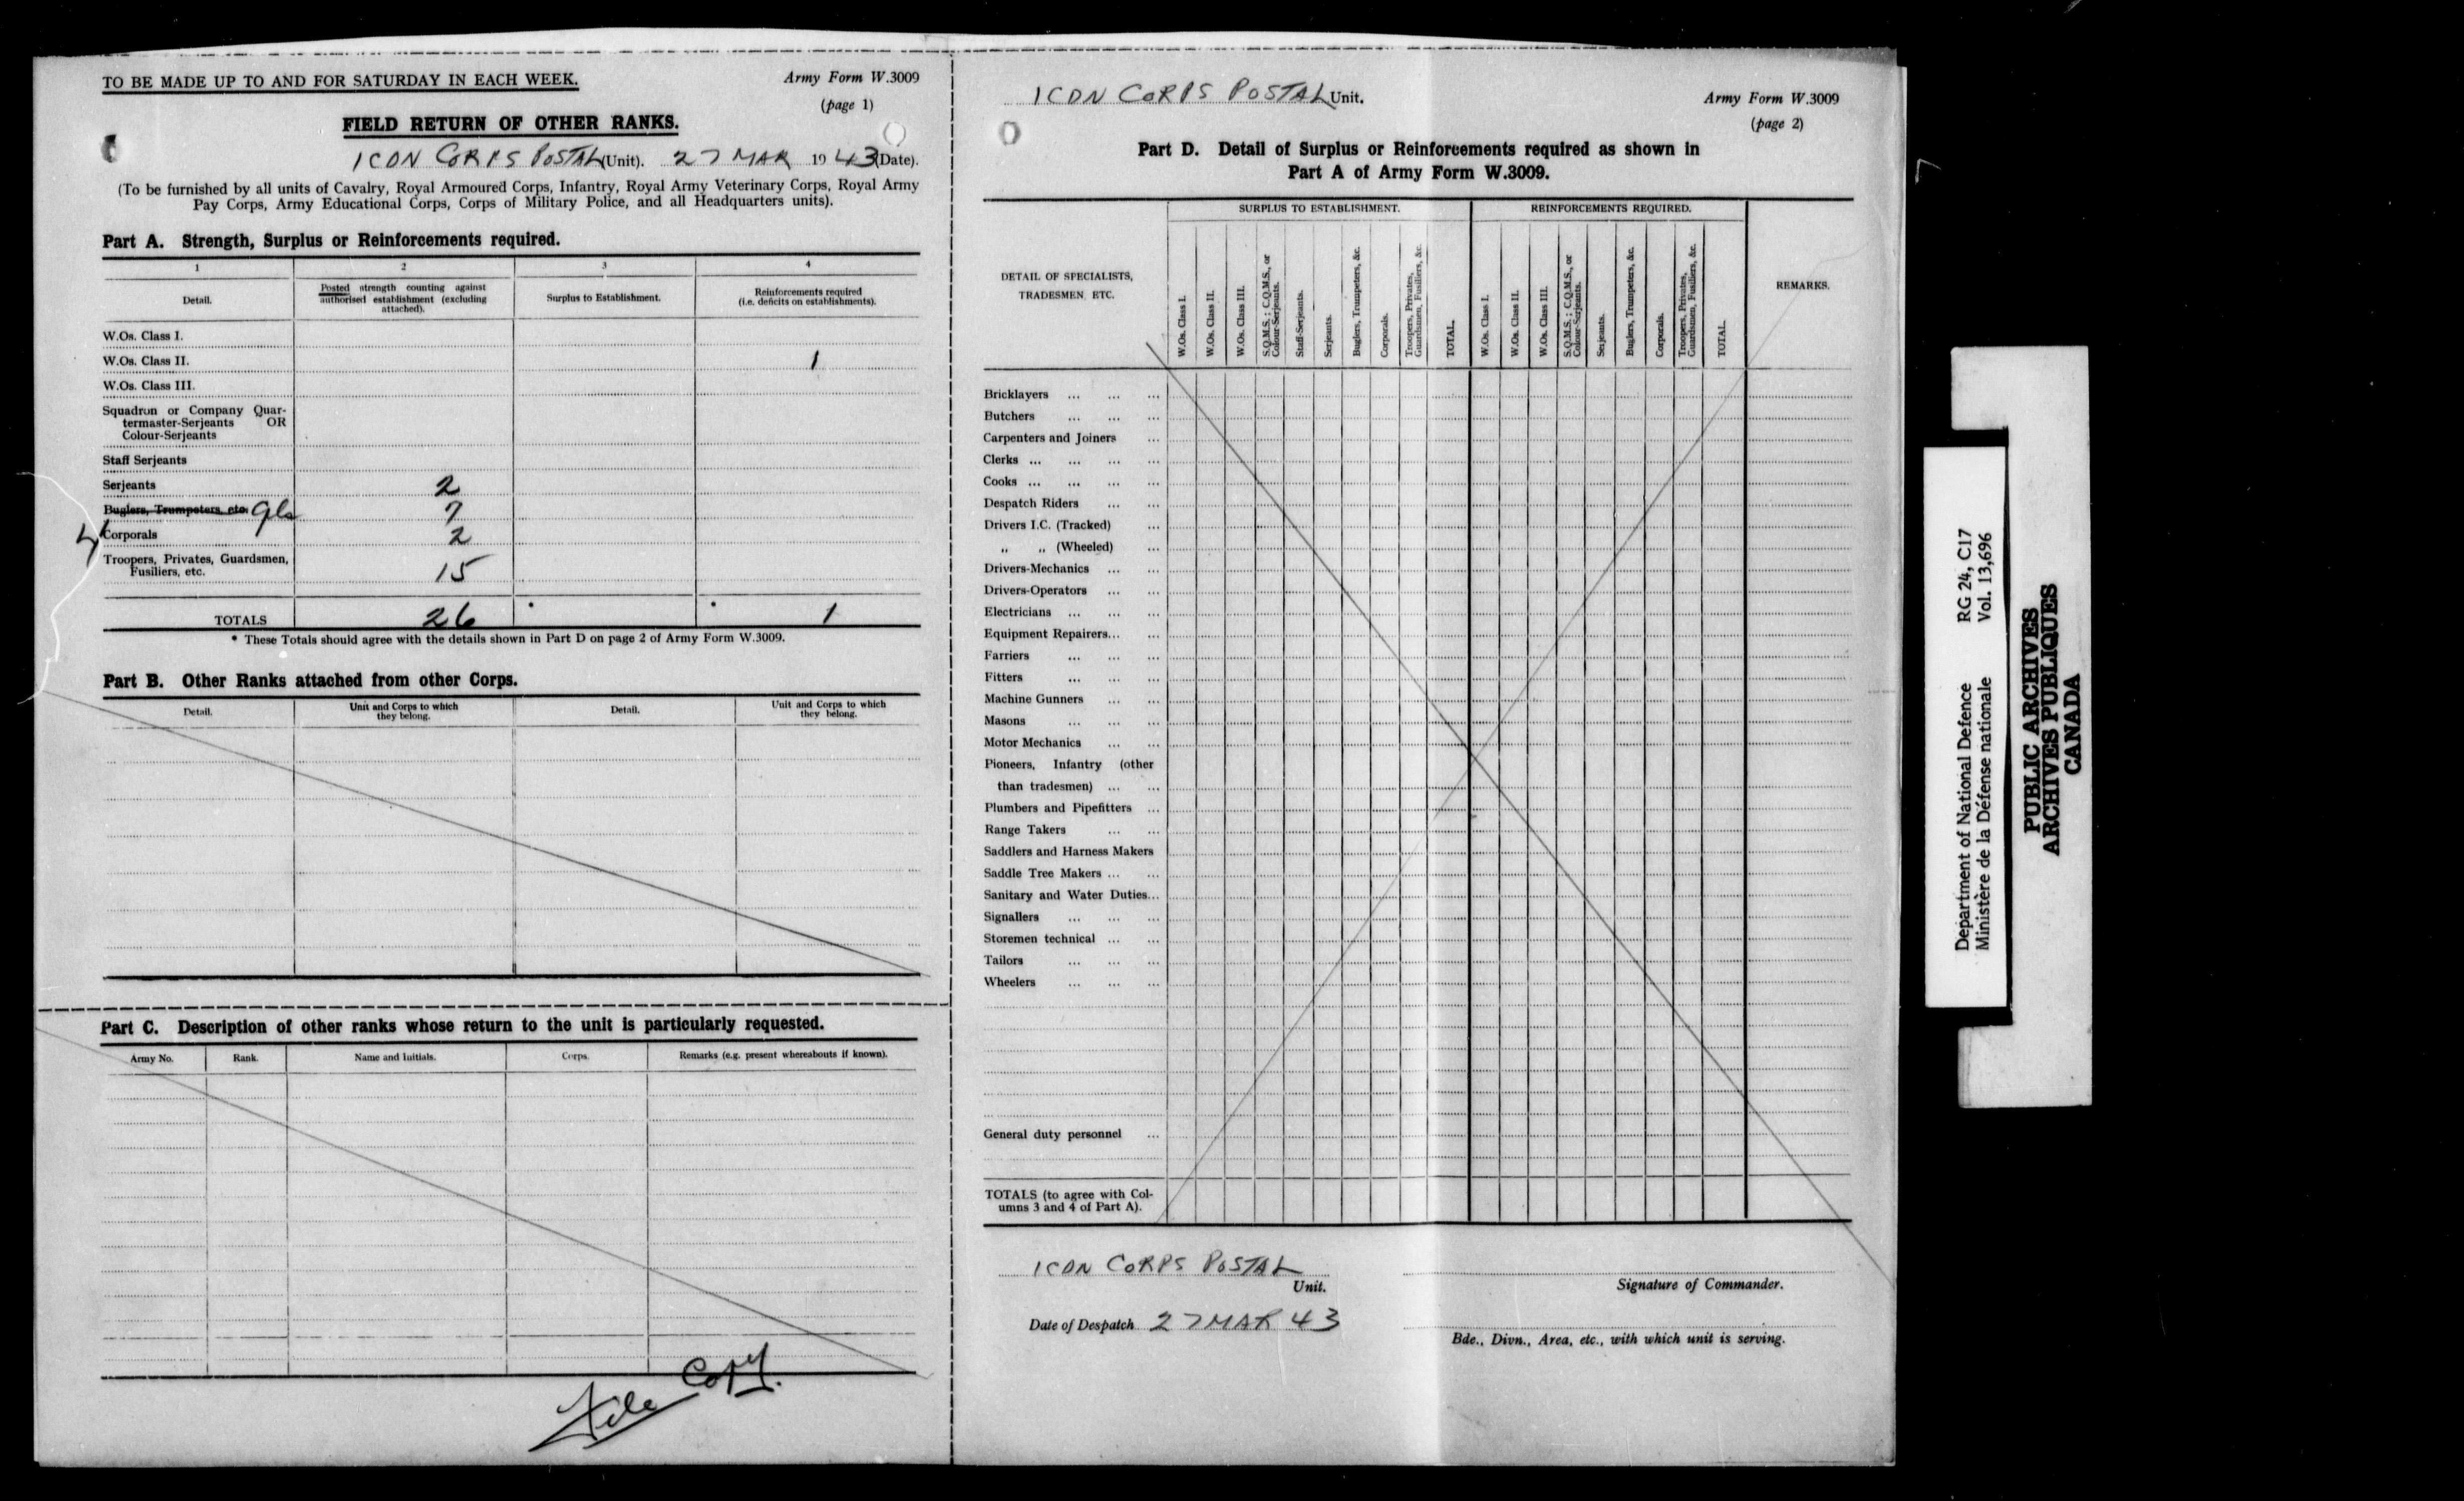 TO BE MADE UP TO AND FOR SATURDAY IN EACH WEEK.
Army Form W.3009
(page 1)
FIELD RETURN OF OTHER RANKS.
1 CDN CORPS POSTAL (Unit). 27 MAR 1943 (Date).
(To be furnished by all units of Cavalry, Royal Armoured Corps, Infantry, Royal Army Veterinary Corps, Royal Army
Pay Corps, Army Educational Corps, Corps of Military Police, and all Headquarters units).
Part A. Strength, Surplus or Reinforcements required.
1 2 3 4
Detail.
Posted strength counting against authorised establishment (excluding attached).
Surplus to Establishment.
Reinforcements required (i.e. deficits on establishments).
W.Os. Class I.
W.Os. Class II. 1
W.Os. Class III.
Squadron or Company Quar-
termaster-Serjeants OR
Colour-Serjeants
Staff Serjeants
Serjeants 2
Buglers, Trumpeters, etc. 7
Corporals 2
Troopers, Privates, Guardsmen,
Fusiliers, etc. 15
TOTALS 26 * * 1
* These Totals should agree with the details shown in Part D on page 2 of Army Form W.3009.
Part B. Other Ranks attached from other Corps.
Detail.
Unit and Corps to which they belong.
Detail.
Unit and Corps to which they belong.
Part C. Description of other ranks whose return to the unit is particularly requested.
Army No. Rank. Name and Initials. Corps. Remarks (e.g. present whereabouts if known).
File Copy.
1 CDN CORPS POSTAL Unit.
Army Form W.3009
(page 2)
Part D. Detail of Surplus or Reinforcements required as shown in
Part A of Army Form W.3009.
DETAIL OF SPECIALISTS,
TRADESMEN, ETC.
SURPLUS TO ESTABLISHMENT.
W.Os. Class I.
W.Os. Class II.
W.Os. Class III.
S.Q.M.S.; C.Q.M.S., or Colour-Serjeants.
Staff-Serjeants.
Serjeants.
Buglers, Trumpeters, &c.
Corporals.
Troopers, Privates, Guardsmen, Fusiliers, &c.
TOTAL.
REINFORCEMENTS REQUIRED.
W.Os. Class I.
W.Os. Class II.
W.Os. Class III.
S.Q.M.S.; C.Q.M.S., or Colour-Serjeants.
Serjeants.
Buglers, Trumpeters, &c.
Corporals.
Troopers, Privates, Guardsmen, Fusiliers, &c.
TOTAL.
REMARKS.
Bricklayers ... ... ...
Butchers ... ... ...
Carpenters and Joiners ...
Clerks ... ... ... ...
Cooks ... ... ... ...
Despatch Riders ... ...
Drivers I.C. (Tracked) ...
„ „ (Wheeled) ...
Drivers-Mechanics ... ...
Drivers-Operators ... ...
Electricians ... ... ...
Equipment Repairers... ...
Farriers ... ... ...
Fitters ... ... ...
Machine Gunners ... ...
Masons ... ... ...
Motor Mechanics ... ...
Pioneers, Infantry (other
than tradesmen) ... ...
Plumbers and Pipefitters ...
Range Takers ... ...
Saddlers and Harness Makers
Saddle Tree Makers ... ...
Sanitary and Water Duties...
Signallers ... ... ...
Storemen technical ... ...
Tailors ... ... ...
Wheelers ... ... ...
General duty personnel ...
TOTALS (to agree with Col-
umns 3 and 4 of Part A).
1 CDN CORPS POSTAL
Unit.
Signature of Commander.
Date of Despatch 27 MAR 43
Bde., Divn., Area, etc., with which unit is serving.
Department of National Defence RG 24, C17
Ministère de la Défense nationale Vol. 13,696
PUBLIC ARCHIVES
ARCHIVES PUBLIQUES
CANADA